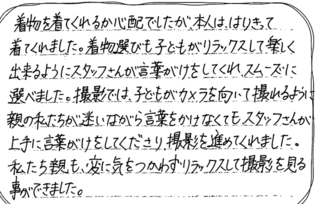 着物を着てくれるか心配でしたが、本人は、はりきって
着てくれました。着物選びも子どもがリラックスして楽しく
出来るようにスタッフさんが言葉がけをしてくれ、スムーズに
選べました。撮影では、子どもがカメラを向いて撮れるように
親の私たちが迷いながら言葉をかけなくてもスタッフさんが
上手に言葉がけをしてくださり、撮影を進めてくれました。
私たち親も、変に気をつかわずリラックスして撮影を見る
事ができました。